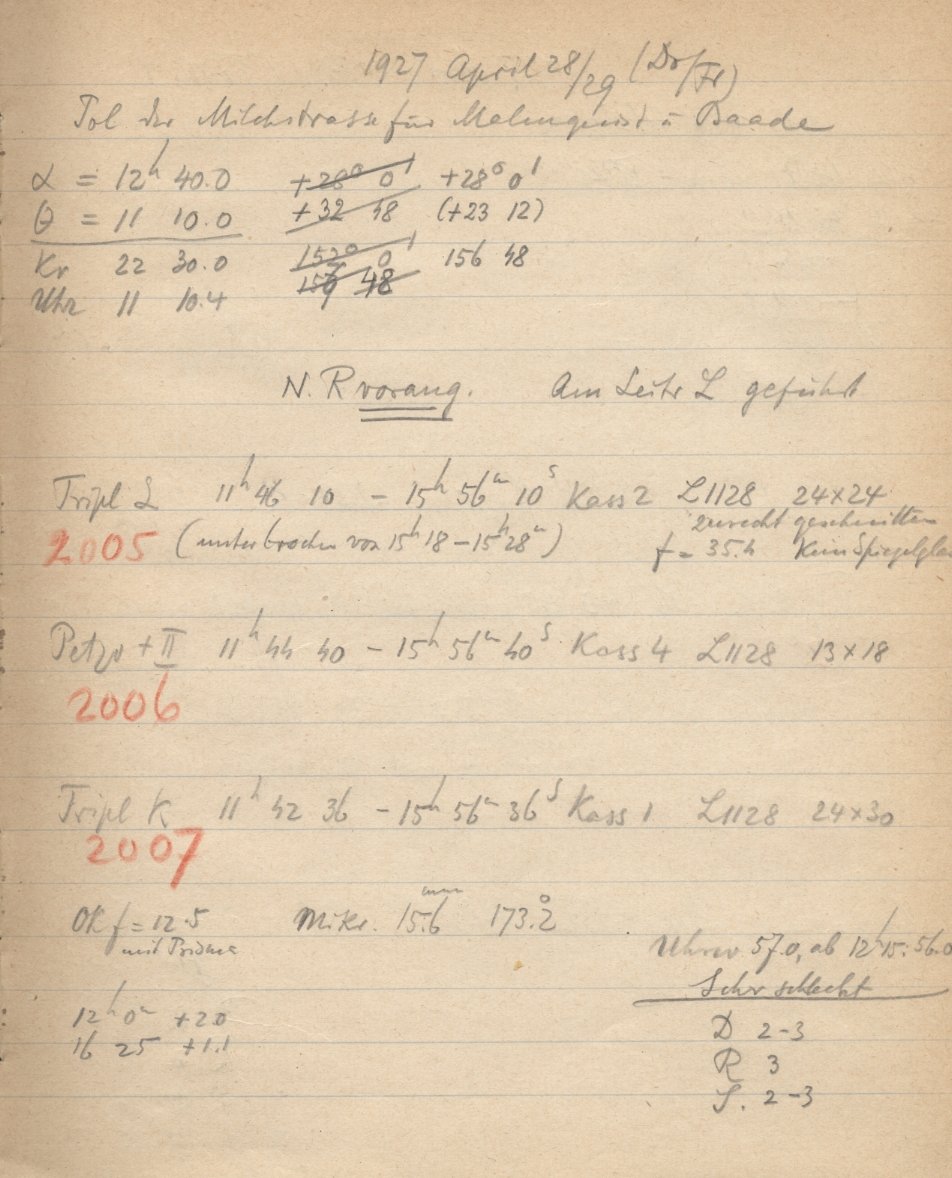 1927 April 28/29 (Do/Fr)
Pol der Milchstrasse für Malmquist u Baade
α = 12ʰ 40.0 +28° 0' +28° 0'
θ = 11 10.0 +32 48 (+23 12)
Kr 22 30.0 152° 0' 156 48
Uhr 11 10.4 48
N. R vorang. Am Leitr L geführt
Tripl L 11ʰ 46 10 – 15ʰ 56ᵐ 10ˢ Kass 2 L1128 24×24
zurecht geschnitten
2005 (unterbrochen von 15ʰ 18 – 15ʰ 28ᵐ) f = 35.4 Kein Spiegelglas
Petzv + II 11ʰ 44 40 – 15ʰ 56ᵐ 40ˢ Kass 4 L1128 13×18
2006
Tripl K 11ʰ 42 36 – 15ʰ 56ᵐ 36ˢ Kass 1 L1128 24×30
2007
Ok f = 12.5 Mikr. 15.6ᵐᵐ 173.°2
mit Prisma
Uhrw 57.0, ab 12ʰ 15: 56.0
Sehr schlecht
12ʰ 0ᵐ +2.0
16 25 +1.1
D 2-3
R 3
S. 2-3